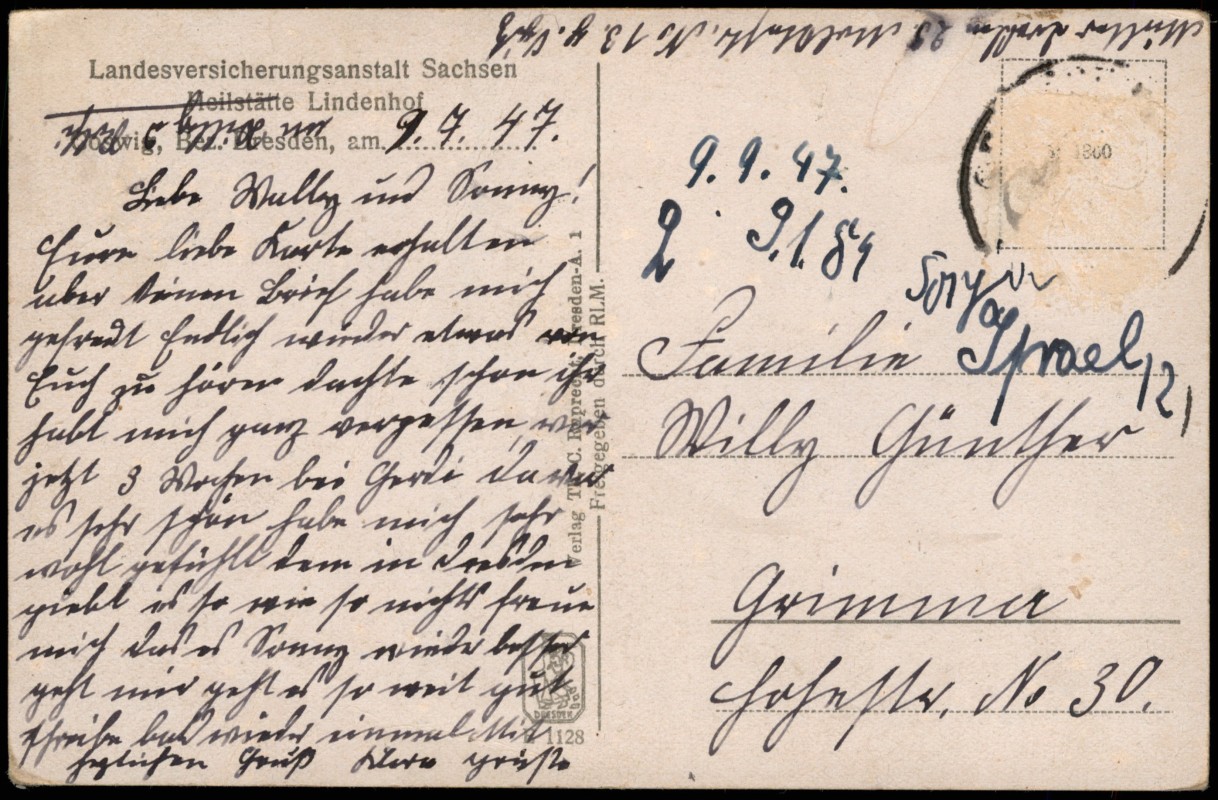 Müller Dresden 23. No 13
Landesversicherungsanstalt Sachsen
Heilstätte Lindenhof
Coswig, Bez. Dresden, am 9.7.47.
Liebe Wally und Sonny!
Eure liebe Karte erhalten
über deinen Brief habe mich
gefreut Endlich wieder etwas von
Euch zu hören dachte schon ihr
habt mich ganz vergessen, war
jetzt 3 Wochen bei Gerdi da war
es sehr schön habe mich sehr
wohl gefühlt denn in Dresden
giebt es so wie so nichts freue
mich das es Sonny wieder besser
geht mir geht es so weit gut
schreibe bald wieder einmal Mit
herzlichen Gruß Klara
Verlag Th. C. Ruprecht, Dresden-A. 1
Freigegeben durch RLM.
DRESDEN
1128
1860
9.9.47.
2 9.1.84
Israel 12
Familie
Willy Günther
Grimma
Hohestr. No 30.